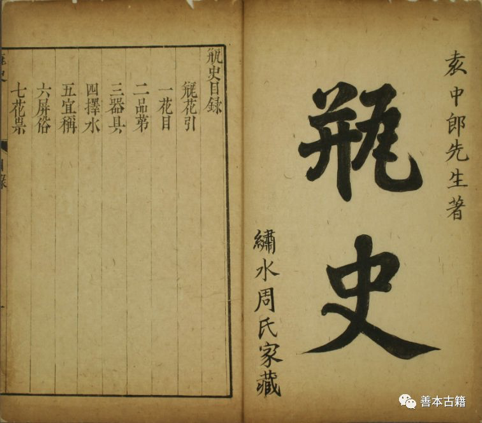 袁中郎先生著
瓶史
繡水周氏家藏
瓶史目錄
瓶花引
一花目
二品第
三器具
四擇水
五宜稱
六屏俗
七花祟
目錄
善本古籍